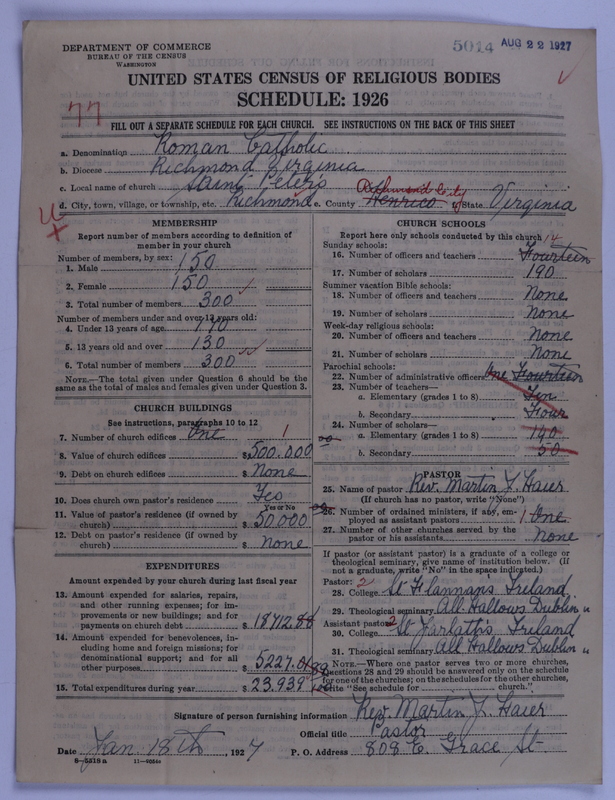 DEPARTMENT OF COMMERCE
BUREAU OF THE CENSUS
WASHINGTON
5014 AUG 22 1927
UNITED STATES CENSUS OF RELIGIOUS BODIES
SCHEDULE: 1926
77
FILL OUT A SEPARATE SCHEDULE FOR EACH CHURCH. SEE INSTRUCTIONS ON THE BACK OF THIS SHEET
a. Denomination Roman Catholic
b. Diocese Richmond Virginia
c. Local name of church Saint Peter's
d. City, town, village, or township, etc. Richmond e. County Henrico Richmond City f. State Virginia
MEMBERSHIP
Report number of members according to definition of member in your church
Number of members, by sex:
1. Male 150
2. Female 150
3. Total number of members 300
Number of members under and over 13 years old:
4. Under 13 years of age 170
5. 13 years old and over 130
6. Total number of members 300
NOTE.—The total given under Question 6 should be the same as the total of males and females given under Question 3.
CHURCH BUILDINGS
See instructions, paragraphs 10 to 12
7. Number of church edifices One 1
8. Value of church edifices $ 500.000
9. Debt on church edifices $ None
10. Does church own pastor's residence Yes
Yes or No
11. Value of pastor's residence (if owned by church) $ 50.000
12. Debt on pastor's residence (if owned by church) $ None
EXPENDITURES
Amount expended by your church during last fiscal year
13. Amount expended for salaries, repairs, and other running expenses; for improvements or new buildings; and for payments on church debt $ 18712.88
14. Amount expended for benevolences, including home and foreign missions; for denominational support; and for all other purposes $ 5227.
15. Total expenditures during year $ 23.939
CHURCH SCHOOLS
Report here only schools conducted by this church
Sunday schools: 14
16. Number of officers and teachers Fourteen
17. Number of scholars 190
Summer vacation Bible schools:
18. Number of officers and teachers None
19. Number of scholars None
Week-day religious schools:
20. Number of officers and teachers None
21. Number of scholars None
Parochial schools:
22. Number of administrative officers One Fourteen
23. Number of teachers—
a. Elementary (grades 1 to 8) Ten
b. Secondary Four
24. Number of scholars—
a. Elementary (grades 1 to 8) 140
b. Secondary 50
PASTOR
25. Name of pastor Rev. Martin J. Haier
(If church has no pastor, write "None")
26. Number of ordained ministers, if any, employed as assistant pastors 1 One
27. Number of other churches served by the pastor or his assistants None
If pastor (or assistant pastor) is a graduate of a college or theological seminary, give name of institution below. (If not a graduate, write "No" in the space indicated.)
Pastor: 2
28. College St Flannans Ireland
29. Theological seminary All Hallows Dublin "
Assistant pastor: 2
30. College St Jarlath's Ireland
31. Theological seminary All Hallows Dublin "
NOTE.—Where one pastor serves two or more churches, Questions 28 and 29 should be answered only on the schedule for one of the churches; on the schedules for the other churches, write "See schedule for ........ church."
Signature of person furnishing information Rev. Martin J. Haier
Official title Pastor
Date Jan. 18th, 1927 P. O. Address 808 E. Grace St
8—5218a 11—9056